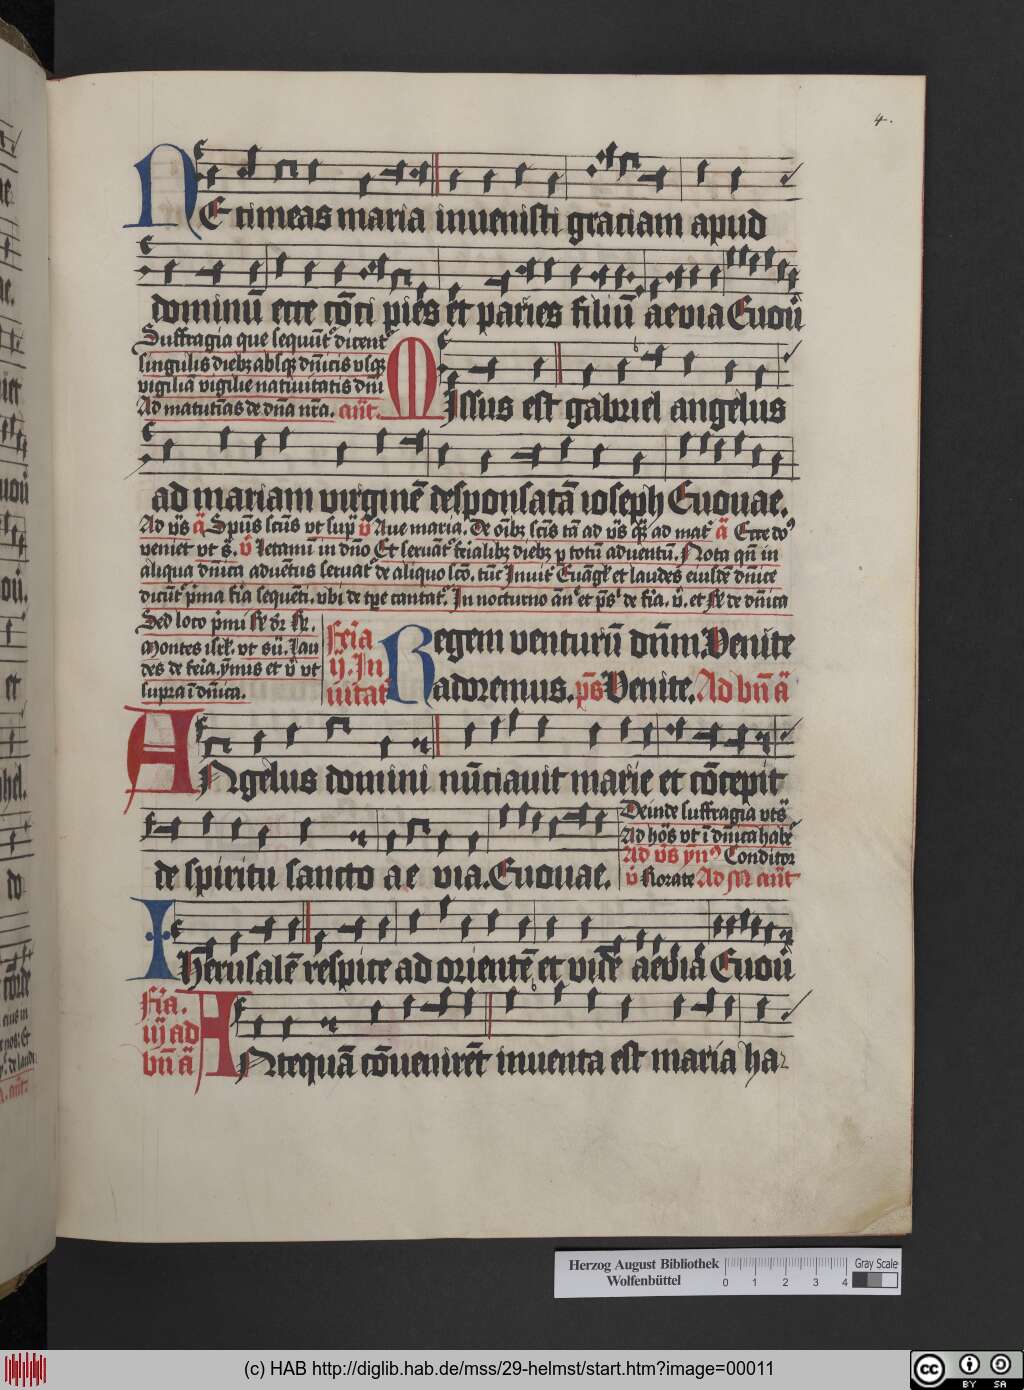 4.
NE timeas maria invenisti graciam apud
dominū ecce cōci pies et paries filiū aevia Euoū
Suffragia que sequūt' dicent'
singulis diebz absqz dn̄icis vsqz
vigiliā vigilie natiuitatis dn̄i
Ad matutīas de dn̄a nr̄a. an̄t.
MIssus est gabriel angelus
ad mariam virginē desponsatā ioseph Euouae.
Ad v̄s ā Spūs scūs vt supͣ v̄ Aue maria. De oīb; scīs tā ad v̄s qͣ; ad mat' ā Ecce dō
veniet vt s̄. v̄ Letamī in dn̄o Et seruāt' ferialib; dieb; p totū aduentū. Nota qn̄ in
aliqua dn̄ica aduētus seruat' de aliquo scō. tūc Inuit' Euāgl' et laudes eiusdē dn̄ice
dicūt' p̄ima fīa sequēti. vbi de tp̄e cantat'. In nocturno an̄ et p̄s' de fīa. v̄. et R̄ de dn̄ica
Sed loco p̄mi R̄ dr̄ R̄.
Montes isrl'. vt sū. Lau
des de feīa. ymus et v̄ vt
supra ī dn̄ica.
Feīa
ij. In
uitat'
Regem venturū dn̄m. Venite
adoremus. p̄s Venite. Ad bn̄ ā
ANgelus domini nūciauit marie et cōcepit
de spiritu sancto ae via. Euouae.
Deinde suffragia vt s̄
Ad hōs vt ī dn̄ica habē'
Ad v̄s ym̄' Conditor
v̄ Rorate Ad M an̄t
Iherusalē respice ad orientē et vidē aevia Euoū
Fīa.
iij ad
bn̄ ā
ANtequā cōuenirēt inuenta est maria ha-
Herzog August Bibliothek
Wolfenbüttel
0 1 2 3 4
Gray Scale
(c) HAB http://diglib.hab.de/mss/29-helmst/start.htm?image=00011
cc BY SA